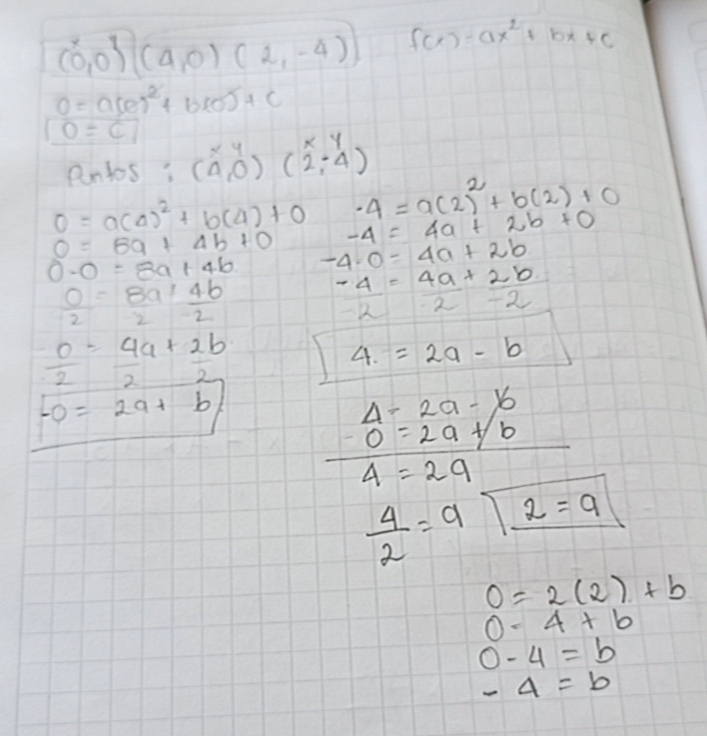 (0,0) (4,0) (2,-4) f(x)=ax²+bx+c
0=a(0)²+b(0)+c
0=c
Puntos: (4,0) (2,-4)
x y x y
0=a(4)²+b(4)+0
0=8a+4b+0
0-0=8a+4b
0/2=8a/2+4b/2
0/2=4a/2+2b/2
-0=2a+b
-4=a(2)²+b(2)+0
-4=4a+2b+0
-4-0=4a+2b
-4/-2=4a/-2+2b/-2
4.=2a-b
4=2a-b
-0=2a+b
4=2a
4/2=a 2=a
0=2(2)+b
0=4+b
0-4=b
-4=b